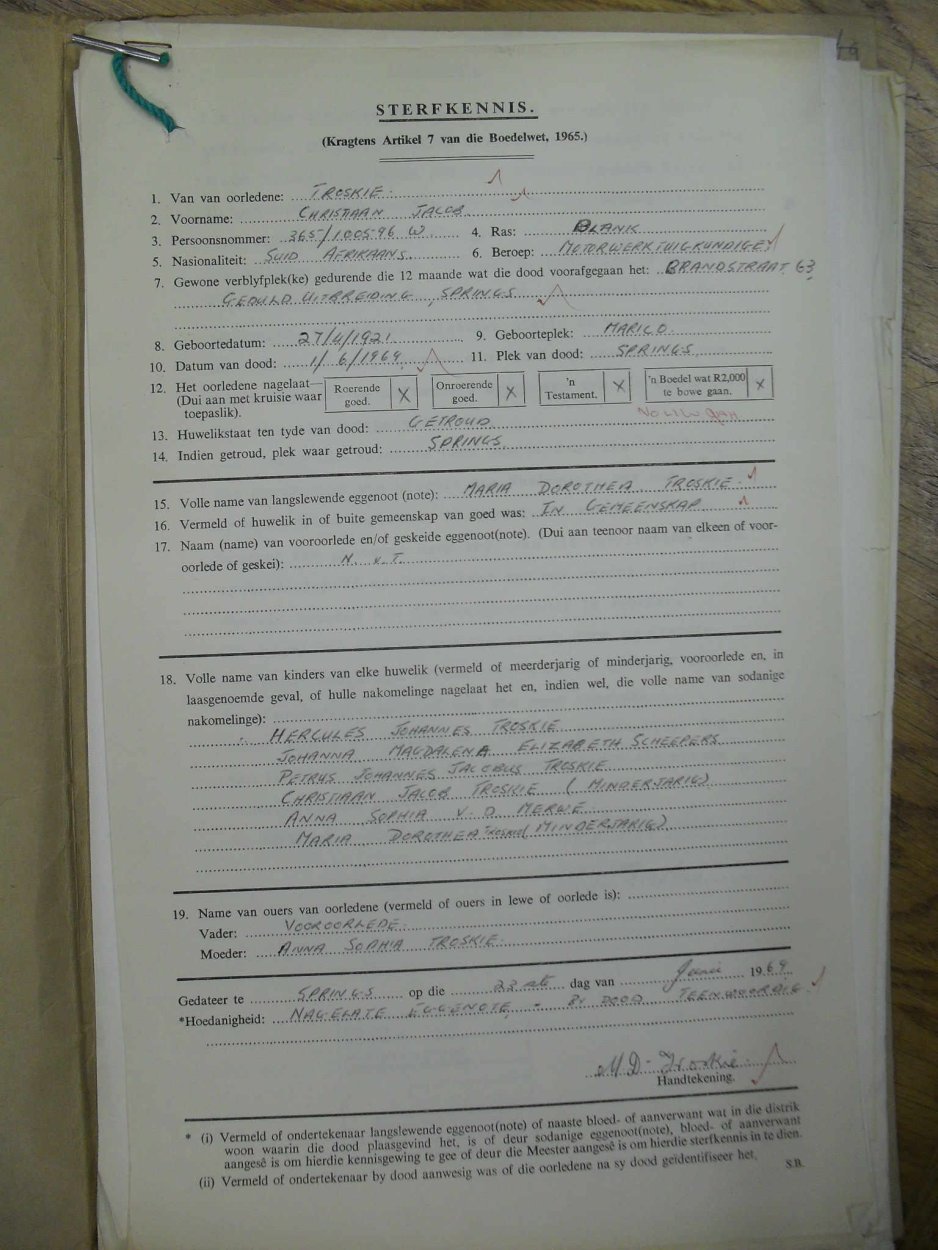 STERFKENNIS.
(Kragtens Artikel 7 van die Boedelwet, 1965.)
1. Van van oorledene: TROSKIE.
2. Voorname: CHRISTIAAN JACOB
3. Persoonsnommer: 365/100596 W 4. Ras: BLANK
5. Nasionaliteit: SUID AFRIKAANS 6. Beroep: MOTORWERKTUIGKUNDIGE
7. Gewone verblyfplek(ke) gedurende die 12 maande wat die dood voorafgegaan het: BRANDSTRAAT 63
GEDULD UITBREIDING, SPRINGS
8. Geboortedatum: 27/4/1921 9. Geboorteplek: MARICO
10. Datum van dood: 1/6/1969 11. Plek van dood: SPRINGS
12. Het oorledene nagelaat— Roerende goed. X Onroerende goed. X 'n Testament. X 'n Boedel wat R2,000 te bowe gaan. X
(Dui aan met kruisie waar
toepaslik).
13. Huwelikstaat ten tyde van dood: GETROUD
14. Indien getroud, plek waar getroud: SPRINGS
15. Volle name van langslewende eggenoot (note): MARIA DOROTHEA TROSKIE
16. Vermeld of huwelik in of buite gemeenskap van goed was: IN GEMEENSKAP
17. Naam (name) van vooroorlede en/of geskeide eggenoot(note). (Dui aan teenoor naam van elkeen of voor-
oorlede of geskei): N. v. T.
18. Volle name van kinders van elke huwelik (vermeld of meerderjarig of minderjarig, vooroorlede en, in
laasgenoemde geval, of hulle nakomelinge nagelaat het en, indien wel, die volle name van sodanige
nakomelinge):
HERCULES JOHANNES TROSKIE
JOHANNA MAGDALENA ELIZABETH SCHEEPERS
PETRUS JOHANNES JACOBUS TROSKIE
CHRISTIAAN JACOB TROSKIE (MINDERJARIG)
ANNA SOPHIA V. D MERWE
MARIA DOROTHEA TROSKIE (MINDERJARIG)
19. Name van ouers van oorledene (vermeld of ouers in lewe of oorlede is):
Vader: VOOROORLEDE.
Moeder: ANNA SOPHIA TROSKIE.
Gedateer te SPRINGS op die 22ste dag van Junie 1969
*Hoedanigheid: NAGELATE EGGENOTE - BY DOOD TEENWOORDIG
M D Troskie
Handtekening.
* (i) Vermeld of ondertekenaar langslewende eggenoot(note) of naaste bloed- of aanverwant wat in die distrik
woon waarin die dood plaasgevind het, is of deur sodanige eggenoot(note), bloed- of aanverwant
aangesê is om hierdie kennisgewing te gee of deur die Meester aangesê is om hierdie sterfkennis in te dien.
(ii) Vermeld of ondertekenaar by dood aanwesig was of die oorledene na sy dood geïdentifiseer het.
S.B.